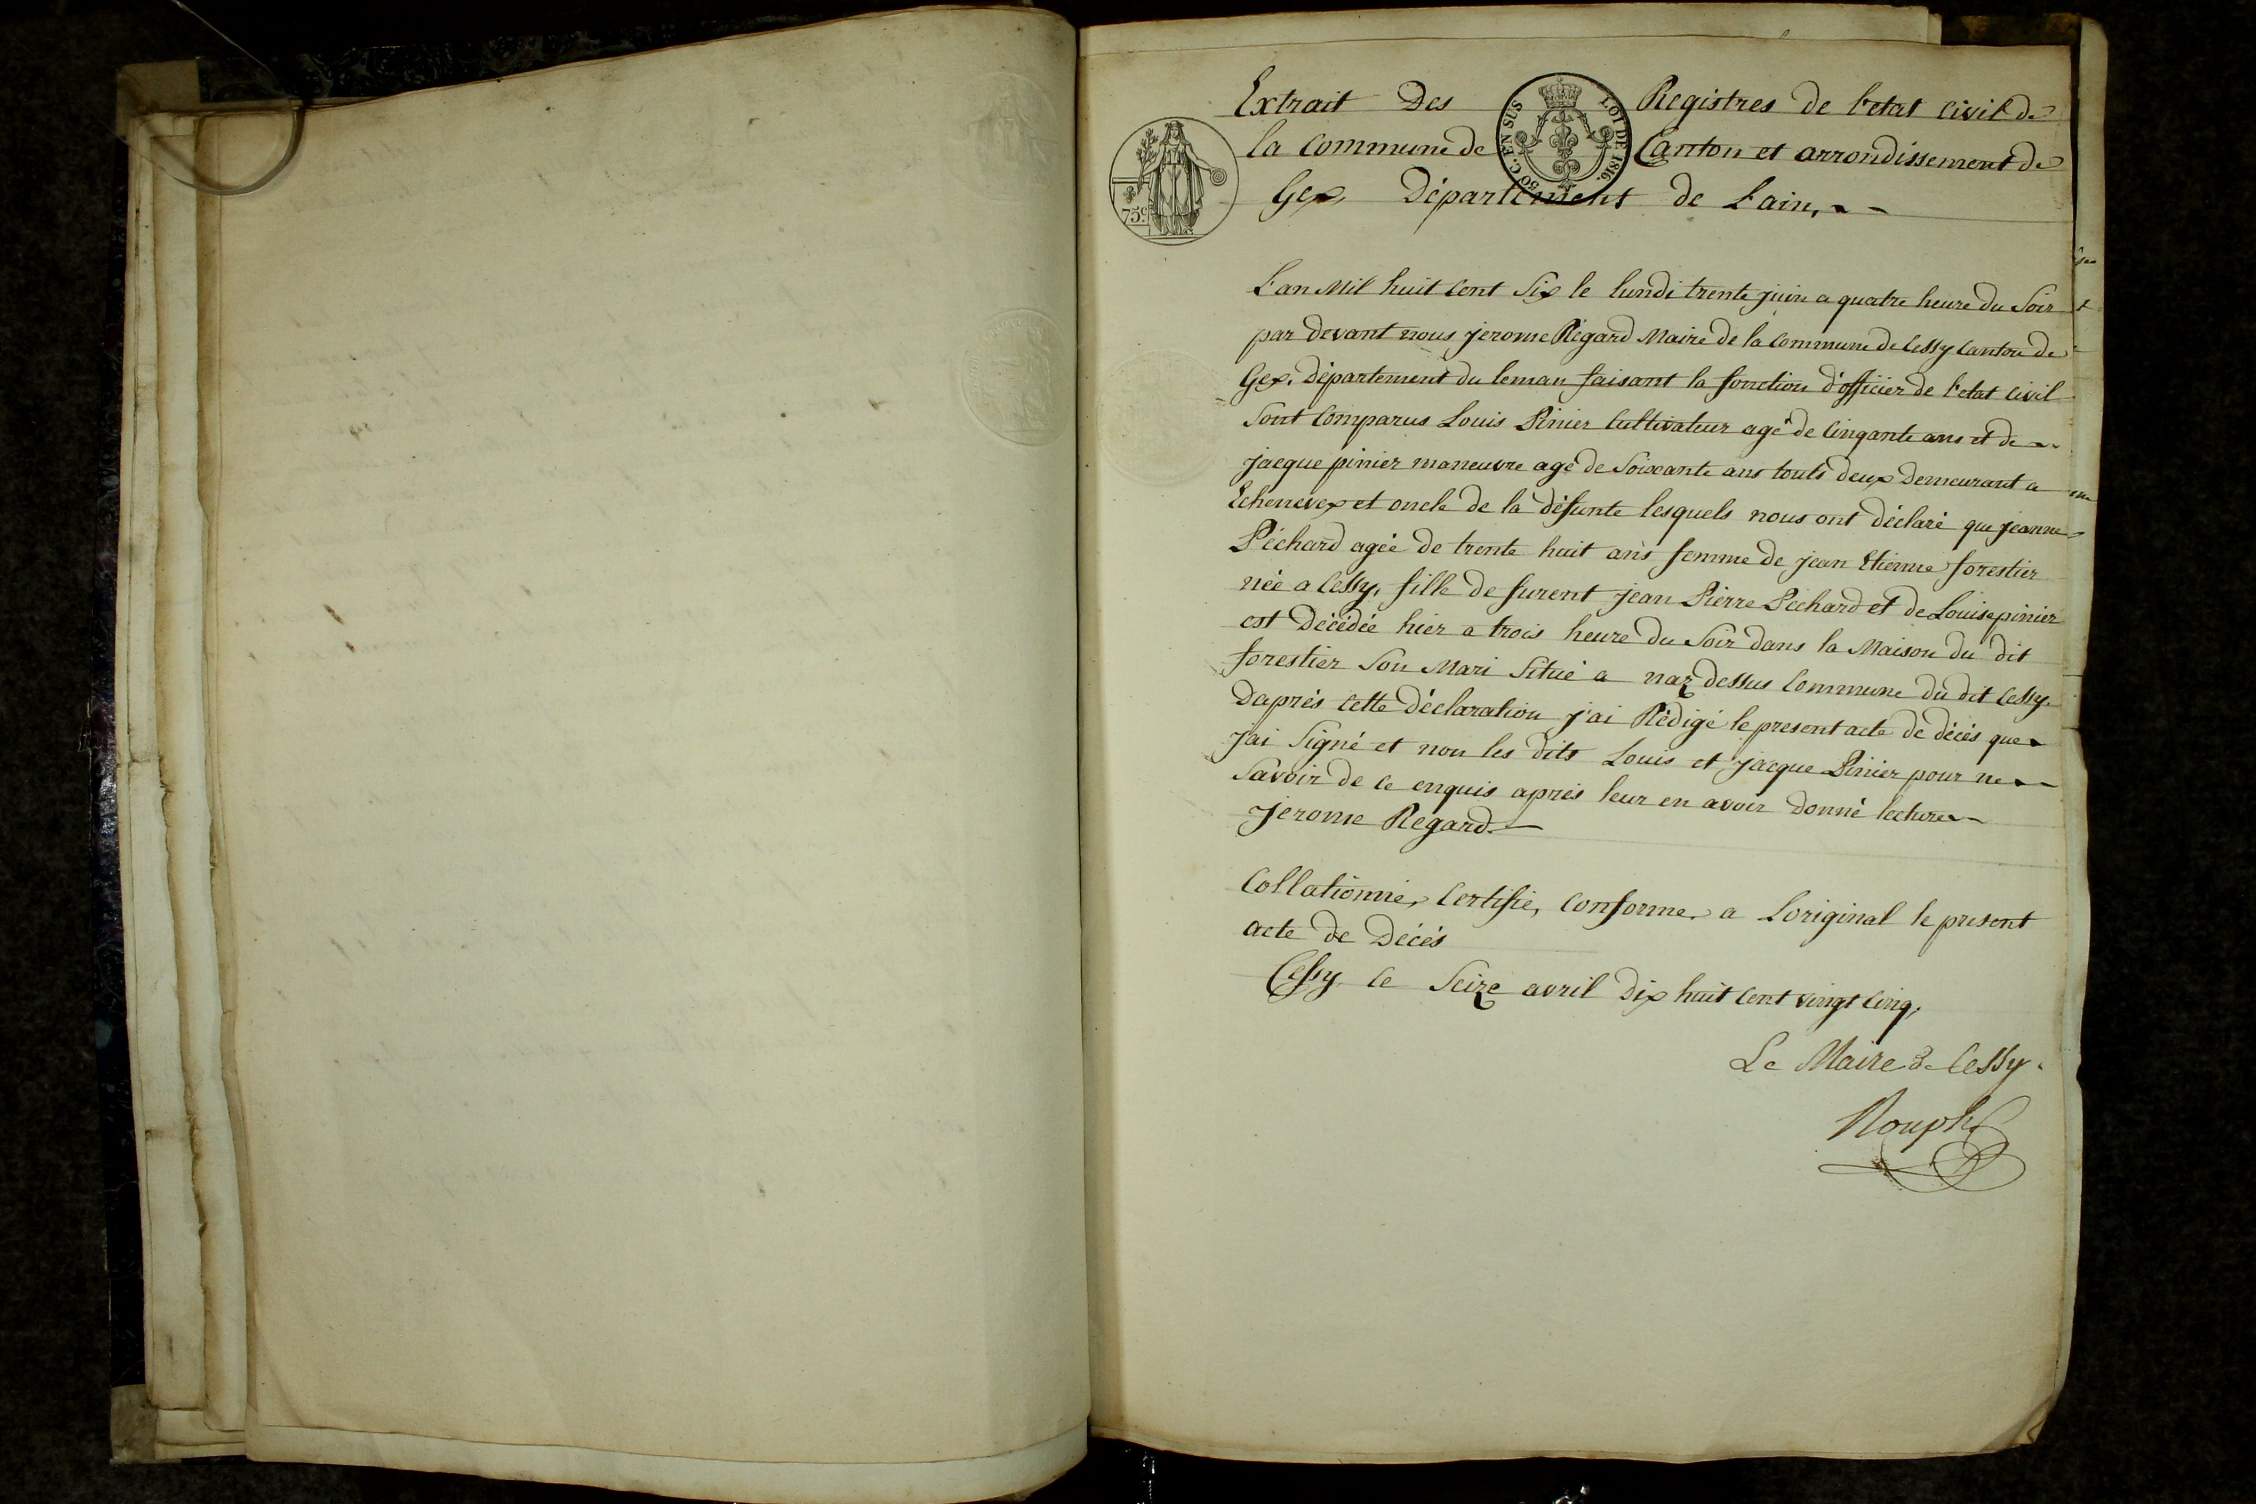 Extrait Des Registres de l'etat civil de
la Commune de Canton et arrondissement de
Gex, Département de L'ain,
50 C. EN SUS LOI DE 1816.
75c
L'an Mil huit Cent Six le lundi trente juin a quatre heure du Soir
par devant nous jerome Régard Maire de la Commune de Cessy Canton de
Gex. Département du leman faisant la fonction d'officier de l'etat Civil
Sont Comparus Louis Pinier Cultivateur agé de Cinqante ans et de
jacque pinier maneuvre agé de Soixante ans touts deux Demeurant a
Echenevex et oncle de la défunte lesquels nous ont déclaré que jeanne
Péchard agée de trente huit ans femme de jean Etienne forestier
née a Cessy, fille de furent jean Pierre Péchard et de Louise pinier
est Décédée hier a trois heure du Soir dans la Maison du dit
forestier Son Mari Situé a naz dessus Commune du dit Cessy.
Daprés Cette déclaration j'ai Rédigé le present acte de décés que
j'ai Signé et non les dits Louis et jacque Pinier pour ne
Savoir de ce enquis aprés leur en avoir Donné lecture
jerome Regard
Collationné, Certifié, Conforme a Loriginal le present
acte de Décés
Cessy ce Seize avril Dix huit Cent vingt Cinq,
Le Maire de Cessy